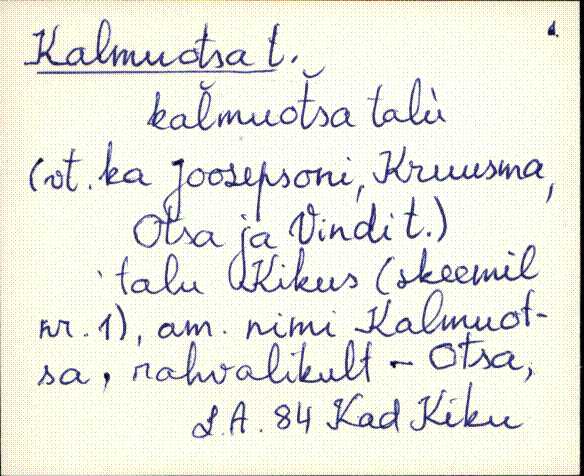 Kalmuotsa t.
kal̆muot̆sa talù
(vt. ka Joosepsoni, Kruusma,
Otsa ja Vindi t.)
talu Kikus (skeemil
nr. 1), am. nimi Kalmuot-
sa, rahvalikult - Otsa,
L.A. 84 Kad Kiku